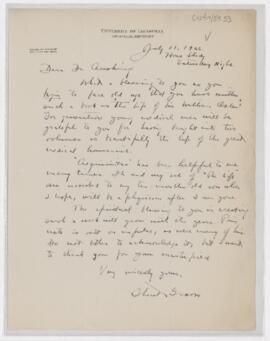 UNIVERSITY OF LOUISVILLE
LOUISVILLE, KENTUCKY
July 11, 19
Home Study
Saturday Night
Dear Dr Cushing:
What a blessing to you as you
to face old age that you have written
such a book as the Life of Sir William Osler!
For generations young medical men will be
grateful to you for having brought into two
volumes so beautifully the life of the great
medical humanist.
"Aequanimitas" has been helpful to me
many times and my set of "The Life"
are inscribed to my ten months old son who
I hope, will be a physician after I am gone.
The spiritual blessing to you in creating
such a work will grow with the years. This
note is not an , as were many of his.
Do not bother to acknowledge it, but I want
to thank you for your masterpiece
Very sincerely yours,